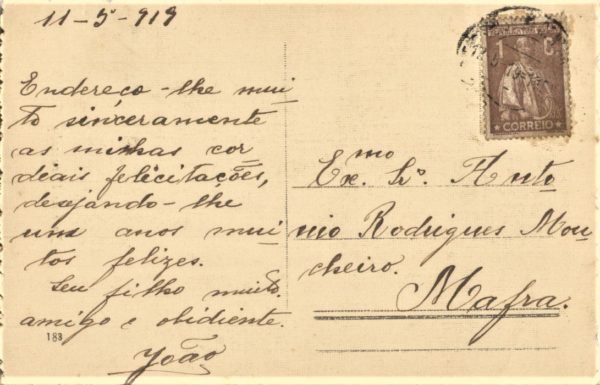 11-5-919
Endereço-lhe mui
to sinceramente
as minhas cor
deais felicitações,
desejando-lhe
uns anos mui
tos felizes.
Seu filho muito
amigo e obidiente.
João
183
1 C
CORREIO
Exmo Sr. Anto
nio Rodrigues Mou
cheiro.
Mafra.